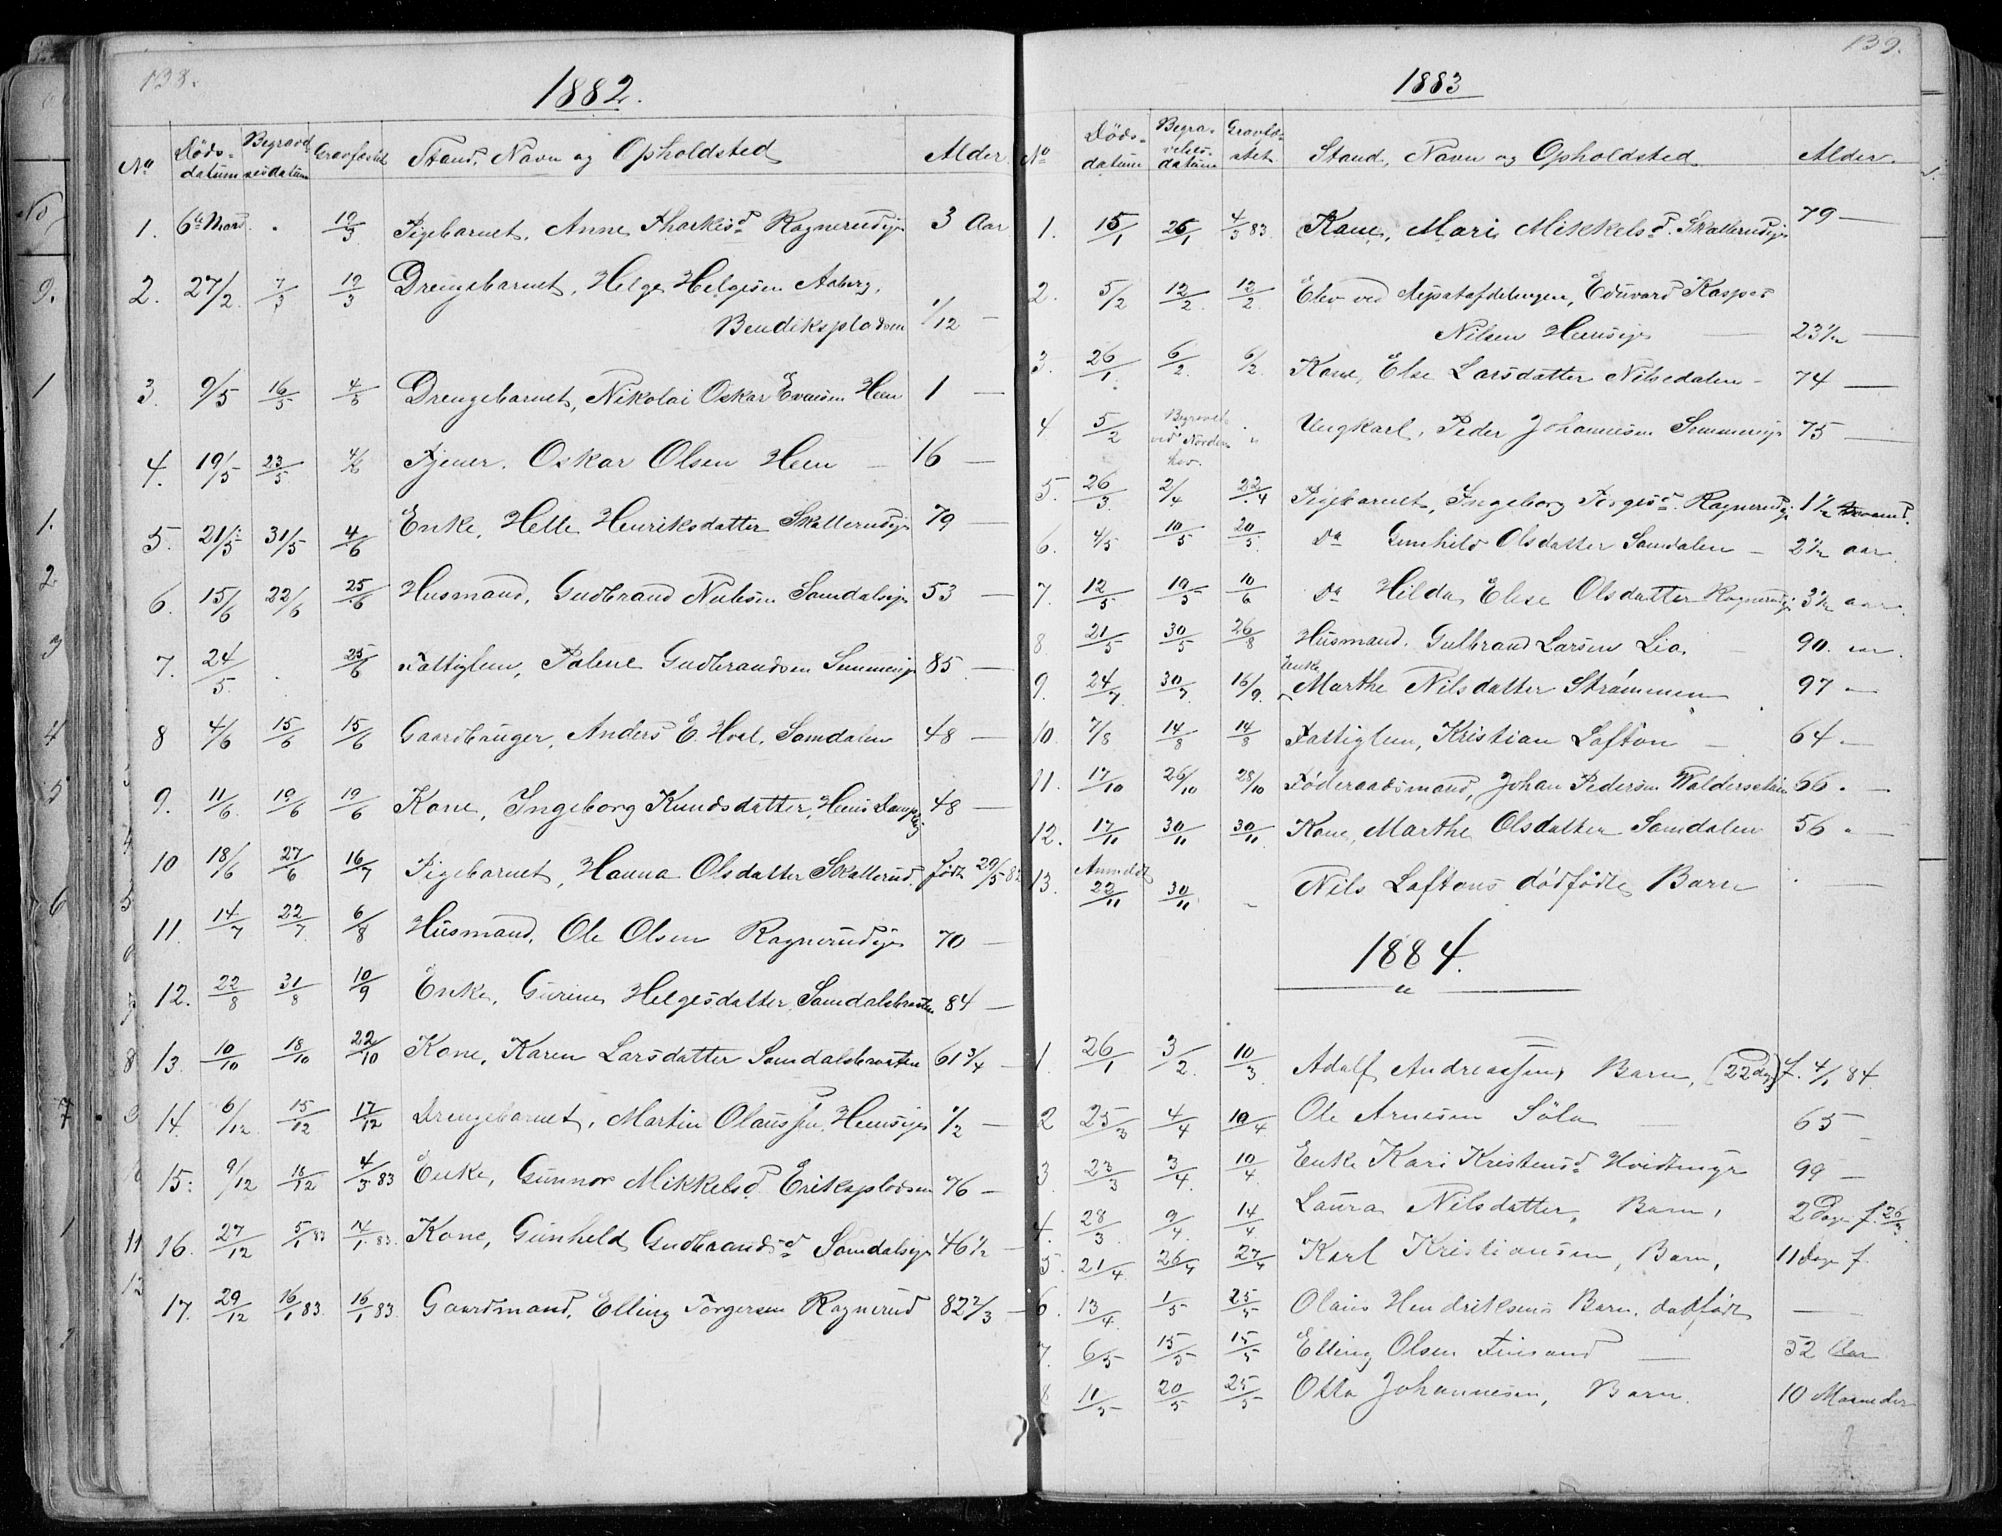 138.
1882.
No Døds- datum Begravelsesdatum Gravfæstet Stand, Navn og Opholdsted Alder
1. 6te Mars . 19/3 Pigebarnet, Anne Tharkisd Ragnerudeje 3 Aar
2. 27/2 7/3 19/3 Drengebarnet, Helge Helgesen Aaberg,
Bendikspladsen 1/12 —
3. 9/5 16/5 4/6 Drengebarnet, Nikolai Oskar Evensen Heen 1 —
4. 19/5 23/5 4/6 Tjener. Oskar Olsen Heen — 16 —
5. 21/5 31/5 4/6 Enke, Helle Henriksdatter Skallerudeje 79 —
6. 15/6 22/6 25/6 Husmand, Gudbrand Nilsen Samdalseje 53 —
7. 24/5 . 25/6 Fattiglem, Paline Gudbrandsen Semmeneje 85 —
8 4/6 15/6 15/6 Gaardbruger, Anders E. Hval, Samdalen 48 —
9. 11/6 19/6 19/6 Kone, Ingeborg Knudsdatter, Hens 48 —
10 18/6 27/6 16/7 Pigebarnet, Hanna Olsdatter Skallerud. født 29/5 82
11. 14/7 22/7 6/8 Husmand, Ole Olsen Ragnerudeje 70 —
12. 22/8 31/8 10/9 Enke, Gurine Helgesdatter, Samdalsbraaten 84 —
13. 10/10 18/10 22/10 Kone, Karen Larsdatter Samdalsbraaten 61 3/4 —
14. 6/12 15/12 17/12 Drengebarnet, Martin Olaussen, Henseje 1/2 —
15. 9/12 18/12 4/3 83 Enke, Gunnor Mikkelsd Erikspladsen 76 —
16. 27/12 5/1 83 14/1 83. Kone, Gunhild Gudbrandsd Samdalseje 46 1/2 —
17. 29/12 16/1 83. 16/1 83. Gaardmand, Elling Torgersen Ragnerud 82 2/3 —
139.
1883
No Døds- datum Begravelses- datum Gravfæstet Stand, Navn og Opholdsted Alder
1. 15/1 26/1 4/3 83. Kone, Mari Mikkelsd. Skallerudeje 79 —
2. 5/2 12/2 12/2 Elev ved Aspirantafdelingen, Eduvard Kasper
Nilsen Henseje — 23 1/2 —
3. 26/1 6/2 6/2 Kone, Else Larsdatter Nilsedalen — 74 —
4 5/2 Begravet ved Norderhov. " Ungkarl, Peder Johannesen Semmeneje 75 —
5. 26/3 2/4 22/4 Pigebarnet, Ingeborg Torgesd. Ragnerudeje 1 1/2
6. 4/5 10/5 20/5 Do Gunhild Olsdatter Samdalen — 2 1/2 aar
7. 12/5 19/5 10/6 Do Hilda Elise Olsdatter Ragnerudeje 3 1/2 aar.
8 21/5 30/5 26/8 Husmand. Gulbrand Larsen Lia — 90. aar.
9. 24/7 30/7 16/9 Enke Marthe Nilsdatter Strømmen 97 —
10. 7/8 14/8 14/8 Fattiglem, Kristian Lofton — 64 —
11. 17/10 26/10 28/10 Føderaadsmand, Johan Pedersen Waldersetheie 66. —
12. 17/11 30/11 30/11 Kone, Marthe Olsdatter Samdalen 56 " —
13. Anmeldt 22/11 30/11 — Nils Loftons dødfødte Barn . —
1884.
1. 26/1 3/2 10/3 Adolf Andreassen, Barn, (22 dage) f. 4/1 84.
2 25/3 4/4 10/4 Ole Arnesen Søla — 65 —
3 23/3 3/4 10/4 Enke Kari Kristensd Hvidtmyr 99 —
4. 28/3 9/4 14/4 Laura Nilsdatter, Barn, 2 Dage f. 26/3
5. 21/4 26/4 27/4 Karl Kristiansen, Barn, 11 Dage f.
6. 13/4 1/5 25/5 Olaus Hendriksens Barn, dødfødt —
7. 6/5 15/5 15/5 Elling Olsen Finsand — 52 Aar
8 11/5 20/5 25/5 Otto Johannesen, Barn. 10 Maaneder